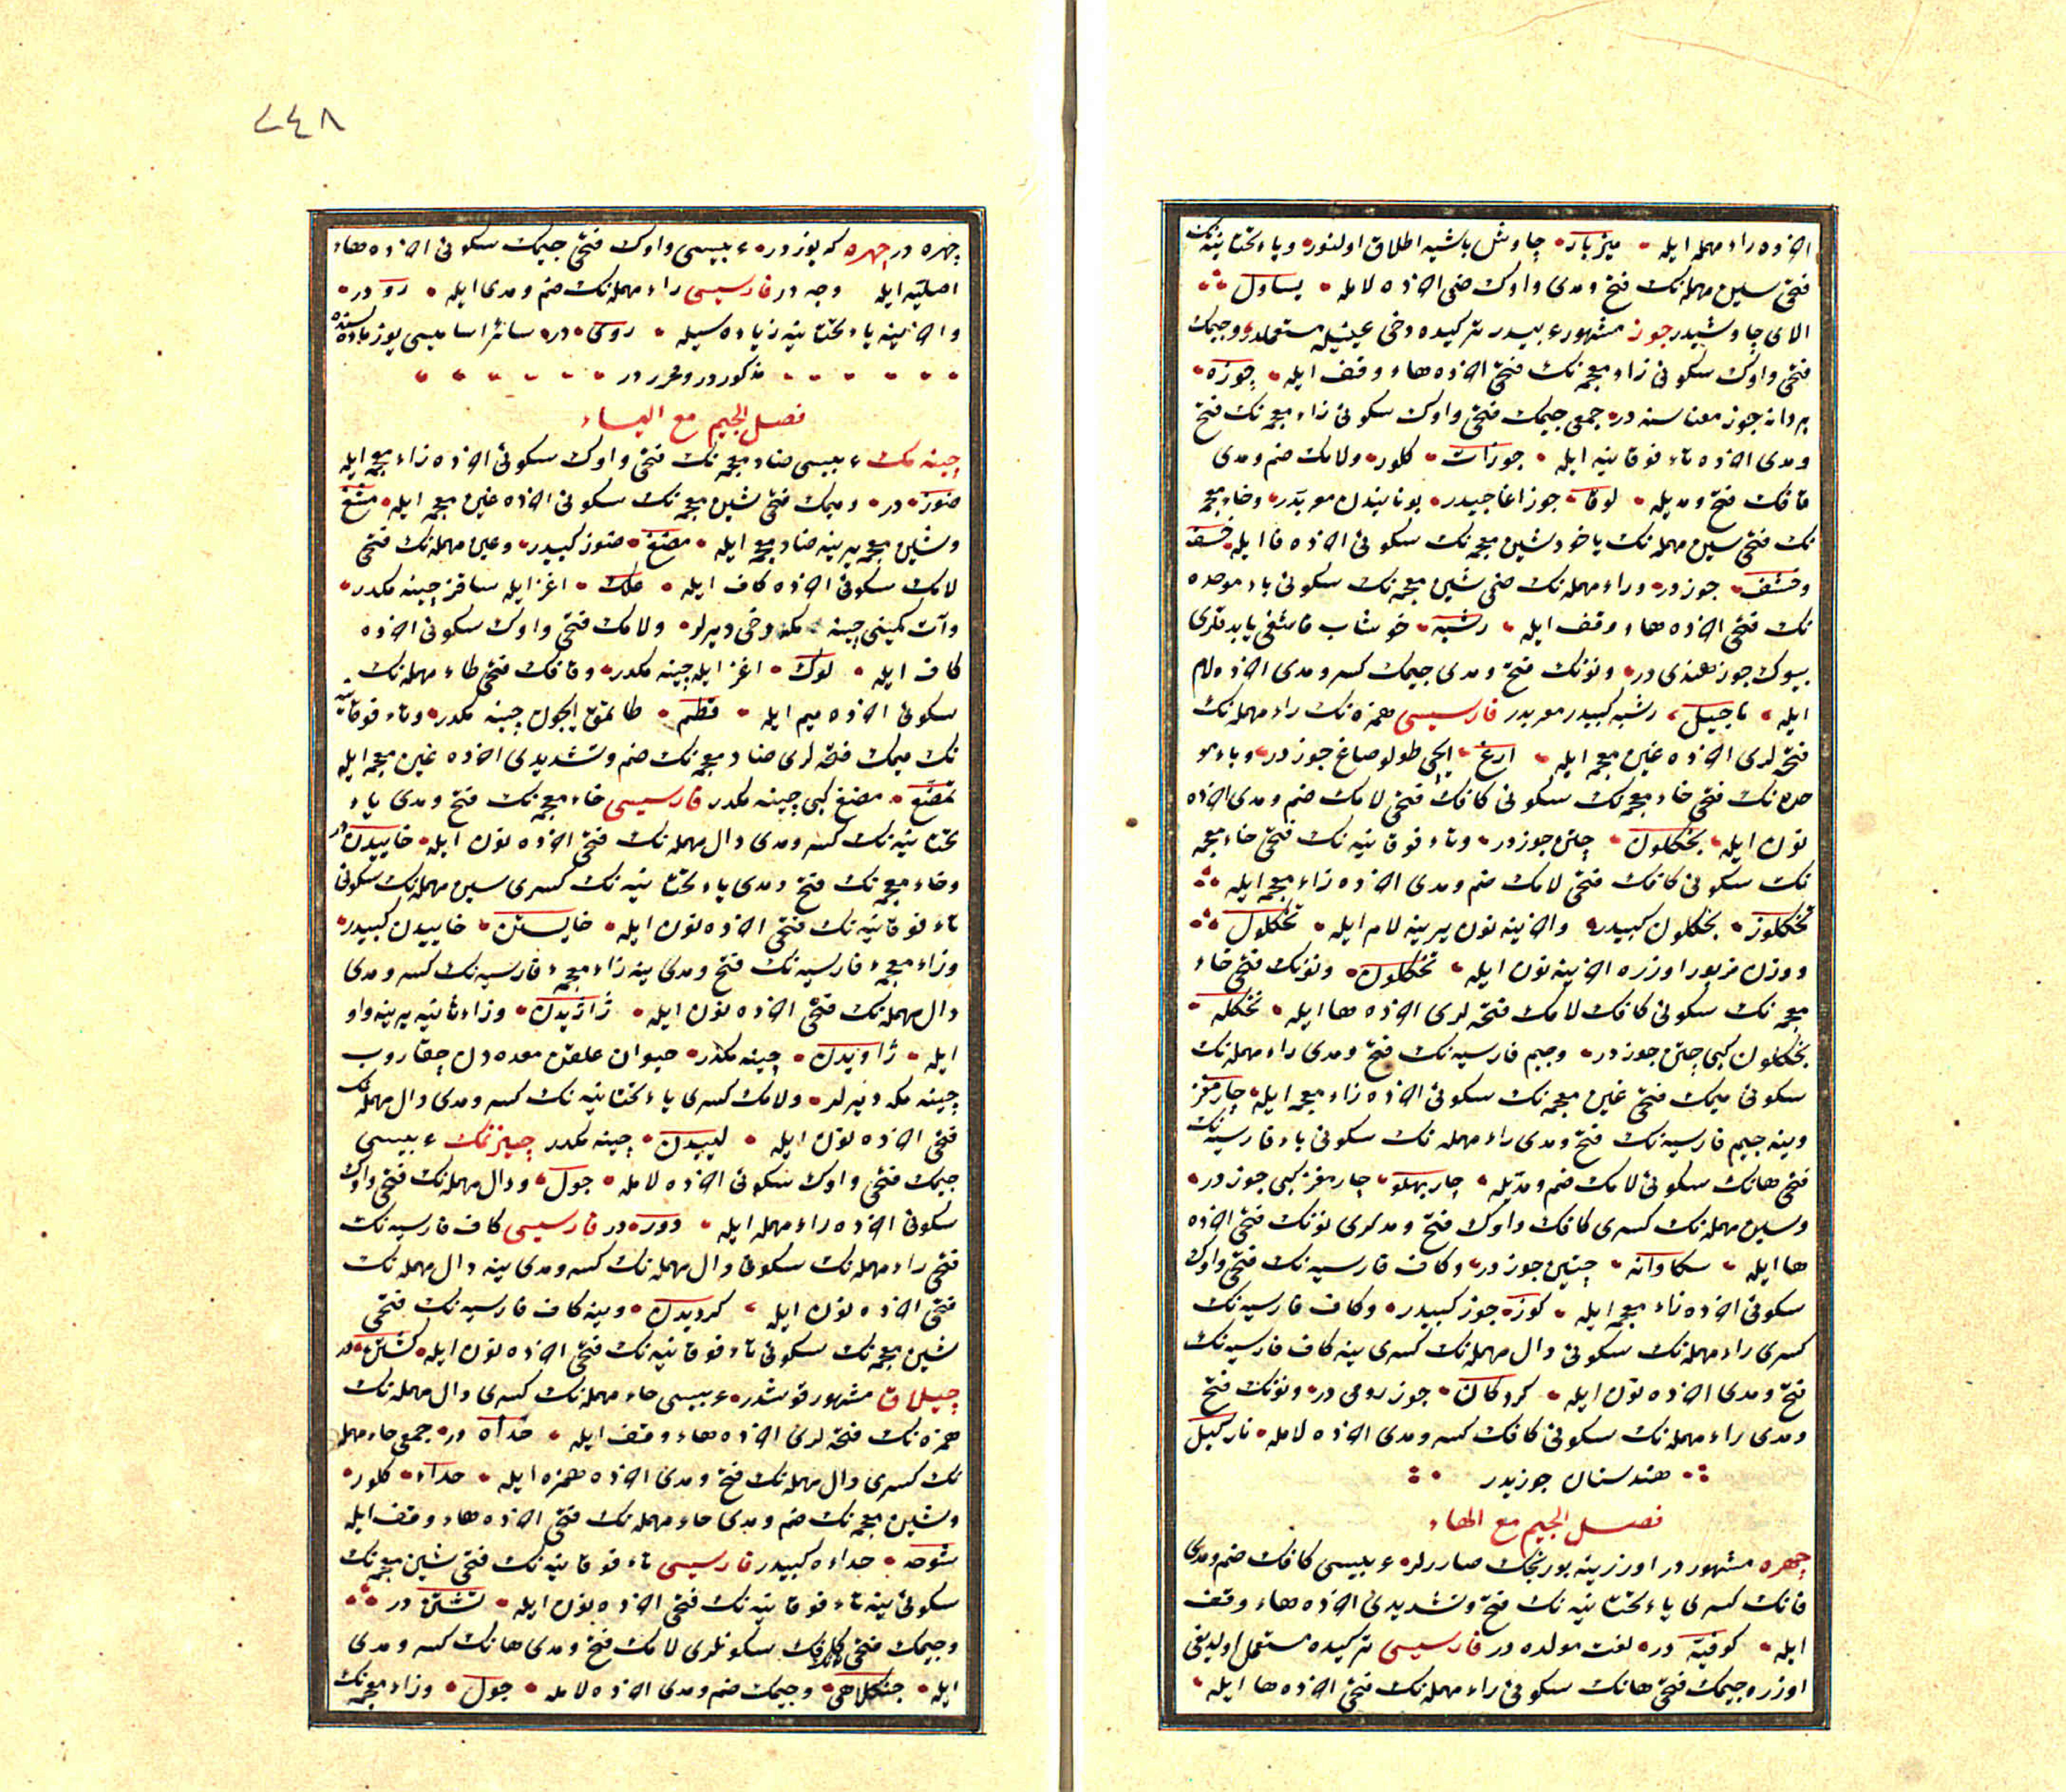 اخرده راء مهمله ايله ميزبار جاوش باشيه اطلاق اولنور وياء تحتانيه نك
فتحى سين مهمله نك فتح ومدى واوك ضمى اخرده لامله يساول
الاى جاوشيدر جوز مشهور عربيدر تركيده دخى عينيله مستعملدر وجيمك
فتحى واوك سكونى زاء معجمه نك فتحى اخرده هاء وقف ايله جوزة
بر دانه جوز معناسنه در جمعى جيمك فتحى واوك سكونى زاء معجمه نك فتح
ومدى اخرده تاء فوقانيه ايله جوزات كلور ولامك ضم ومدى
قافك فتح ومديله لوقا جوز اغاجيدر يونانيدن معربدر وخاء معجمه
نك فتحى سين مهمله نك ياخود شين معجمه نك سكونى اخرده فا ايله خسف
وخشف جوز در وراء مهمله نك ضمى شين معجمه نك سكونى باء موحده
نك فتحى اخرده هاء وقف ايله رشبه خوشاب
بيوك جوز هندى در ونونك فتح ومدى جيمك كسر ومدى اخرده لام
ايله ناجيل رشبه كبيدر معربدر فارسيسى همزه نك راء مهمله نك
فتحه لرى اخرده غين معجمه ايله ارغ ايچى طولو صاغ جوز در وباء مو
حده نك فتحى خاء معجمه نك سكونى كافك فتحى لامك ضم ومدى اخرده
نون ايله بخكلون چتن جوز در وتاء فوقانيه نك فتحى خاء معجمه
نك سكونى كافك فتحى لامك ضم ومدى اخرده زاء معجمه ايله
تخكلوز بخكلون كبيدر واخرينه نون يرينه لام ايله تخكلول
ووزن مزبور اوزره اخرينه نون ايله تخكلون ونونك فتحى خاء
معجمه نك سكونى كافك لامك فتحه لرى اخرده ها ايله نخكله
بخكلون كبى چتن جوز در وجيم فارسيه نك فتح ومدى راء مهمله نك
سكونى ميمك فتحى غين معجمه نك سكونى اخرده زاء معجمه ايله چارمغز
وينه جيم فارسيه نك فتح ومدى راء مهمله نك سكونى باء فارسيه نك
فتحى هانك سكونى لامك ضم ومديله چارپهلو چارمغز كبى جوز در
وسين مهمله نك كسرى كافك واوك فتح ومدلرى نونك فتحى اخرده
ها ايله سكاوانه چتين جوز در وكاف فارسيه نك فتحى واوك
سكونى اخرده زاء معجمه ايله كوز جوز كبيدر وكاف فارسيه نك
كسرى راء مهمله نك سكونى دال مهمله نك كسرى ينه كاف فارسيه نك
فتح ومدى اخرده نون ايله كردكان جوز رومى در ونونك فتح
ومدى راء مهمله نك سكونى كافك كسر ومدى اخرده لامله ناركيل
هندستان جوزيدر
فصل الجيم مع الهاء
چهره مشهور در اوزرينه بورنجك صاررلر عربيسى كافك ضم ومدى
فانك كسرى ياء تحتانيه نك فتح وتشديدى اخرده هاء وقف
ايله كوفية در لغت مولده در فارسيسى تركيده مستعمل اولديغى
اوزره جيمك فتحى هانك سكونى راء مهمله نك فتحى اخرده ها ايله
٧٤٨
چهره در چهره كه يوز در عربيسى واوك فتحى جيمك سكونى اخرده هاء
اصليه ايله وجه در فارسيسى راء مهمله نك ضم ومدى ايله رو در
واخرينه ياء تحتانيه زياده سيله روى در سائر اساميسى يوز ماده سنده
مذكور در ومحرر در
فصل الجيم مع الياء
چينه مك عربيسى ضاد معجمه نك فتحى واوك سكونى اخرده زاء معجمه ايله
ضوز در وميمك فتحى شين معجمه نك سكونى اخرده غين معجمه ايله مشغ
وشين معجمه يرينه ضاد معجمه ايله مضغ ضوز كبيدر وعين مهمله نك فتحى
لامك سكونى اخرده كاف ايله علك اغز ايله ساقز چينه مكدر
وآت كمينى چينه مكه دخى ديرلر ولامك فتحى واوك سكونى اخرده
كاف ايله لوك اغز ايله چينه مكدر وقافك فتحى طاء مهمله نك
سكونى اخرده ميم ايله قطم طاتمق ايچون چينه مكدر وتاء فوقانيه
نك ميمك فتحه لرى ضاد معجمه نك ضم وتشديدى اخرده غين معجمه ايله
تمضغ مضغ كبى چينه مكدر فارسيسى خاء معجمه نك فتح ومدى ياء
تحتانيه نك كسر ومدى دال مهمله نك فتحى اخرده نون ايله خاييدن در
وخاء معجمه نك فتح ومدى ياء تحتانيه نك كسرى سين مهمله نك سكونى
تاء فوقانيه نك فتحى اخرده نون ايله خايستن خاييدن كبيدر
وزاء معجمه ء فارسيه نك فتح ومدى ينه زاء معجمه ء فارسيه نك كسر ومدى
دال مهمله نك فتحى اخرده نون ايله ژاژيدن وزاء ثانيه يرينه واو
ايله ژاويدن چينه مكدر حيوان علفن معده دن چقاروب
چينه مكه ديرلر ولامك كسرى ياء تحتانيه نك كسر ومدى دال مهمله نك
فتحى اخرده نون ايله لييدن چينه مكدر چيزنمك عربيسى
جيمك فتحى واوك سكونى اخرده لامله جول ودال مهمله نك فتحى واوك
سكونى اخرده راء مهمله ايله دور در فارسيسى كاف فارسيه نك
فتحى راء مهمله نك سكونى دال مهمله نك كسر ومدى ينه دال مهمله نك
فتحى اخرده نون ايله كرديدن وينه كاف فارسيه نك فتحى
شين معجمه نك سكونى تاء فوقانيه نك فتحى اخرده نون ايله كشتن در
چيلاق مشهور قوشدر عربيسى حاء مهمله نك كسرى دال مهمله نك
همزه نك فتحه لرى اخرده هاء وقف ايله حدأه در جمعى حاء مهمله
نك كسرى دال مهمله نك فتح ومدى اخرده همزه ايله حداء كلور
وشين معجمه نك ضم ومدى حاء مهمله نك فتحى اخرده هاء وقف ايله
شوحه حداءه كبيدر فارسيسى تاء فوقانيه نك فتحى شين معجمه نك
سكونى ينه تاء فوقانيه نك فتحى اخرده نون ايله تشتن در
وجيمك فتحى كافك سكونلرى لامك فتح ومدى هانك كسر ومدى
ايله جنكلاهى وجيمك ضم ومدى اخرده لامله جول وزاء معجمه نك